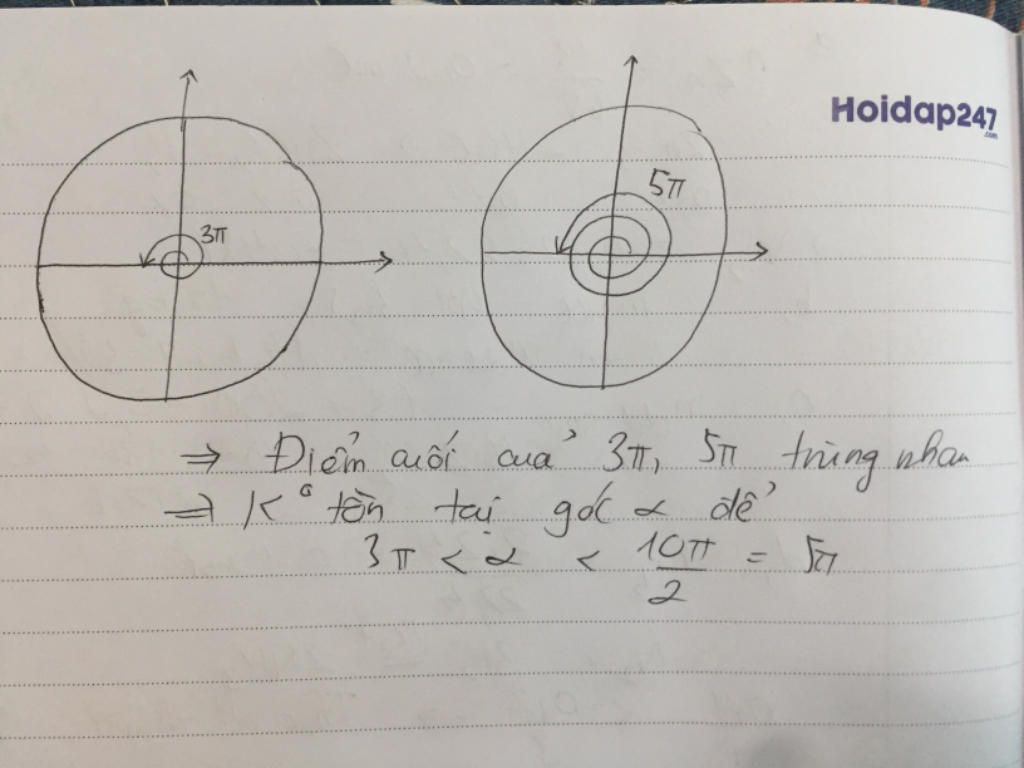 Hoidap247
.com
3π
5π
=> Điểm cuối của 3π, 5π trùng nhau
=> K° tồn tại góc α để
3π < α < 10π/2 = 5π